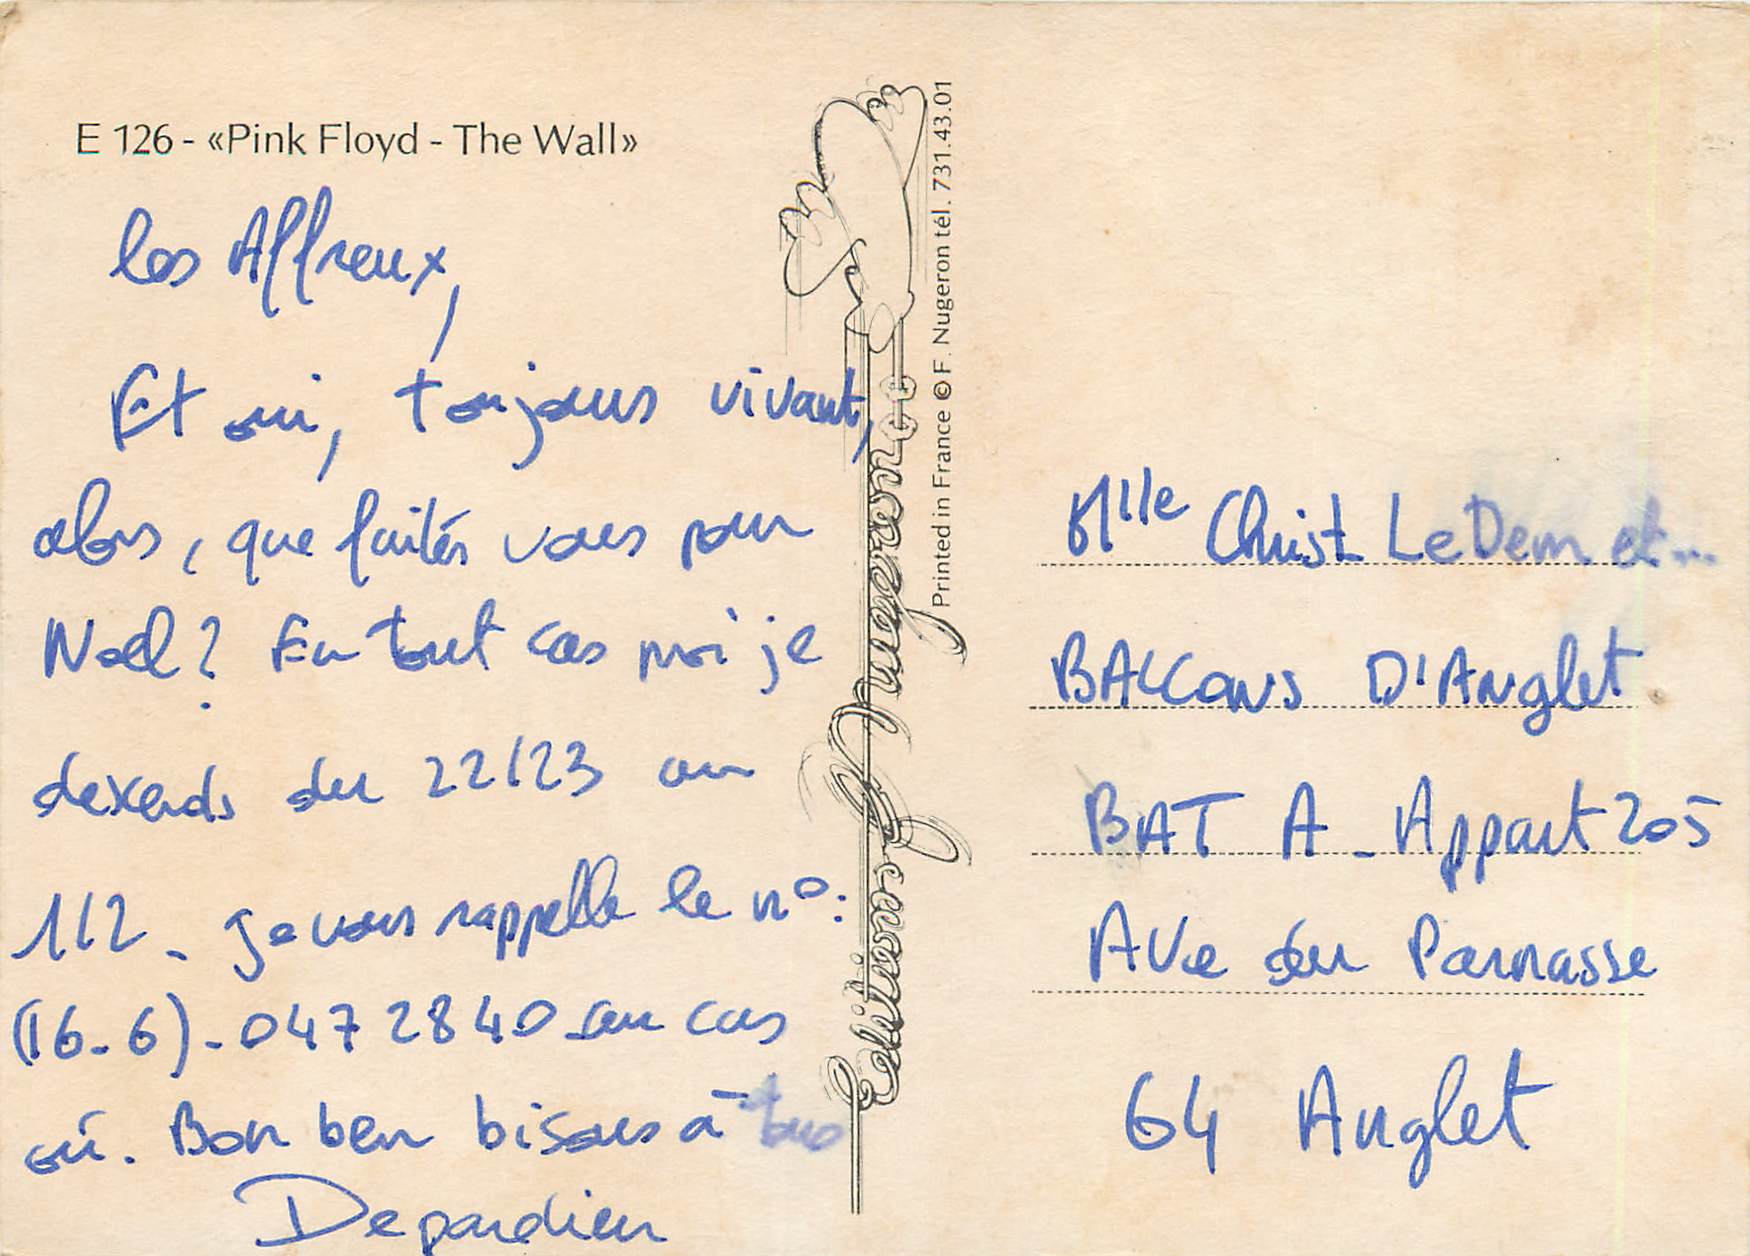 E 126 - «Pink Floyd - The Wall»
les Affreux,
Et oui, toujours vivant,
alors, que faites vous pour
Noel? En tout cas moi je
descends du 22/23 au
1/2 - Je vous rappelle le n°:
(16-6)-047 28 40 au cas
où. Bon ben bisous à tous
Depardieu
Editions F. Nugeron
Printed in France © F. Nugeron tél. 731.43.01
Mlle Christ LeDem et...
BALCONS D'Anglet
BAT A - Appart 205
AVe du Parnasse
64 Anglet